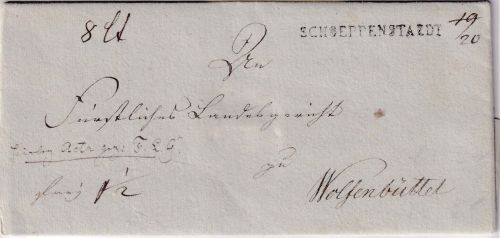 8 Lt
SCHOEPPENSTAEDT 19/20
An
Fürstliches Landesgericht
Acta
zu
frey 1 1/2
Wolfenbüttel